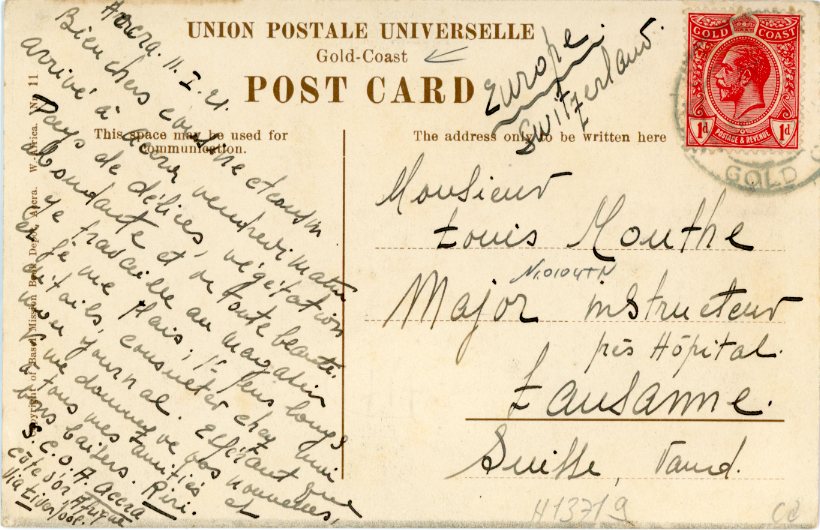 UNION POSTALE UNIVERSELLE
Gold-Coast
POST CARD
This space may be used for
Communication.
The address only to be written here
Copyright of Basel Mission Book Depot, Accra. W. Africa. No. 11
Accra. 11. I. 21.
Bien chers cousine et cousin
arrivé à Accra vendredi matin
Pays de délices, végétation
abondante et de toute beauté.
Je travaille au magasin
et je me plais; pr plus longs
détails, consulter chez moi
mon journal. Espérant que
vs me donnerez de vos nouvelles,
à tous mes amitiés et
bons baisers. Riri.
S.C.O.A. Accra
côte d'or Afrique
Via Liverpool.
Europe.
Switzerland.
Monsieur
Louis Mouthe
Major instructeur
près Hôpital.
Lausanne.
Suisse, Vaud.
H13719
GOLD COAST
1d 1d
POSTAGE & REVENUE
GOLD